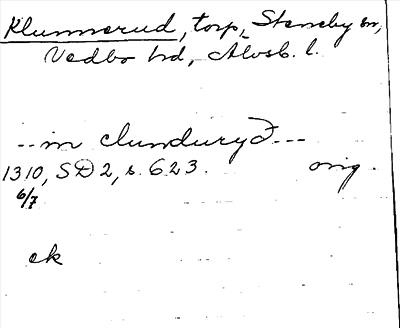 Klummerud, torp, Steneby sn,
Vedbo hd, Älvsb. l.
-- in clunduryd ---
1310, SD 2, s. 623. orig.
6/7
ek